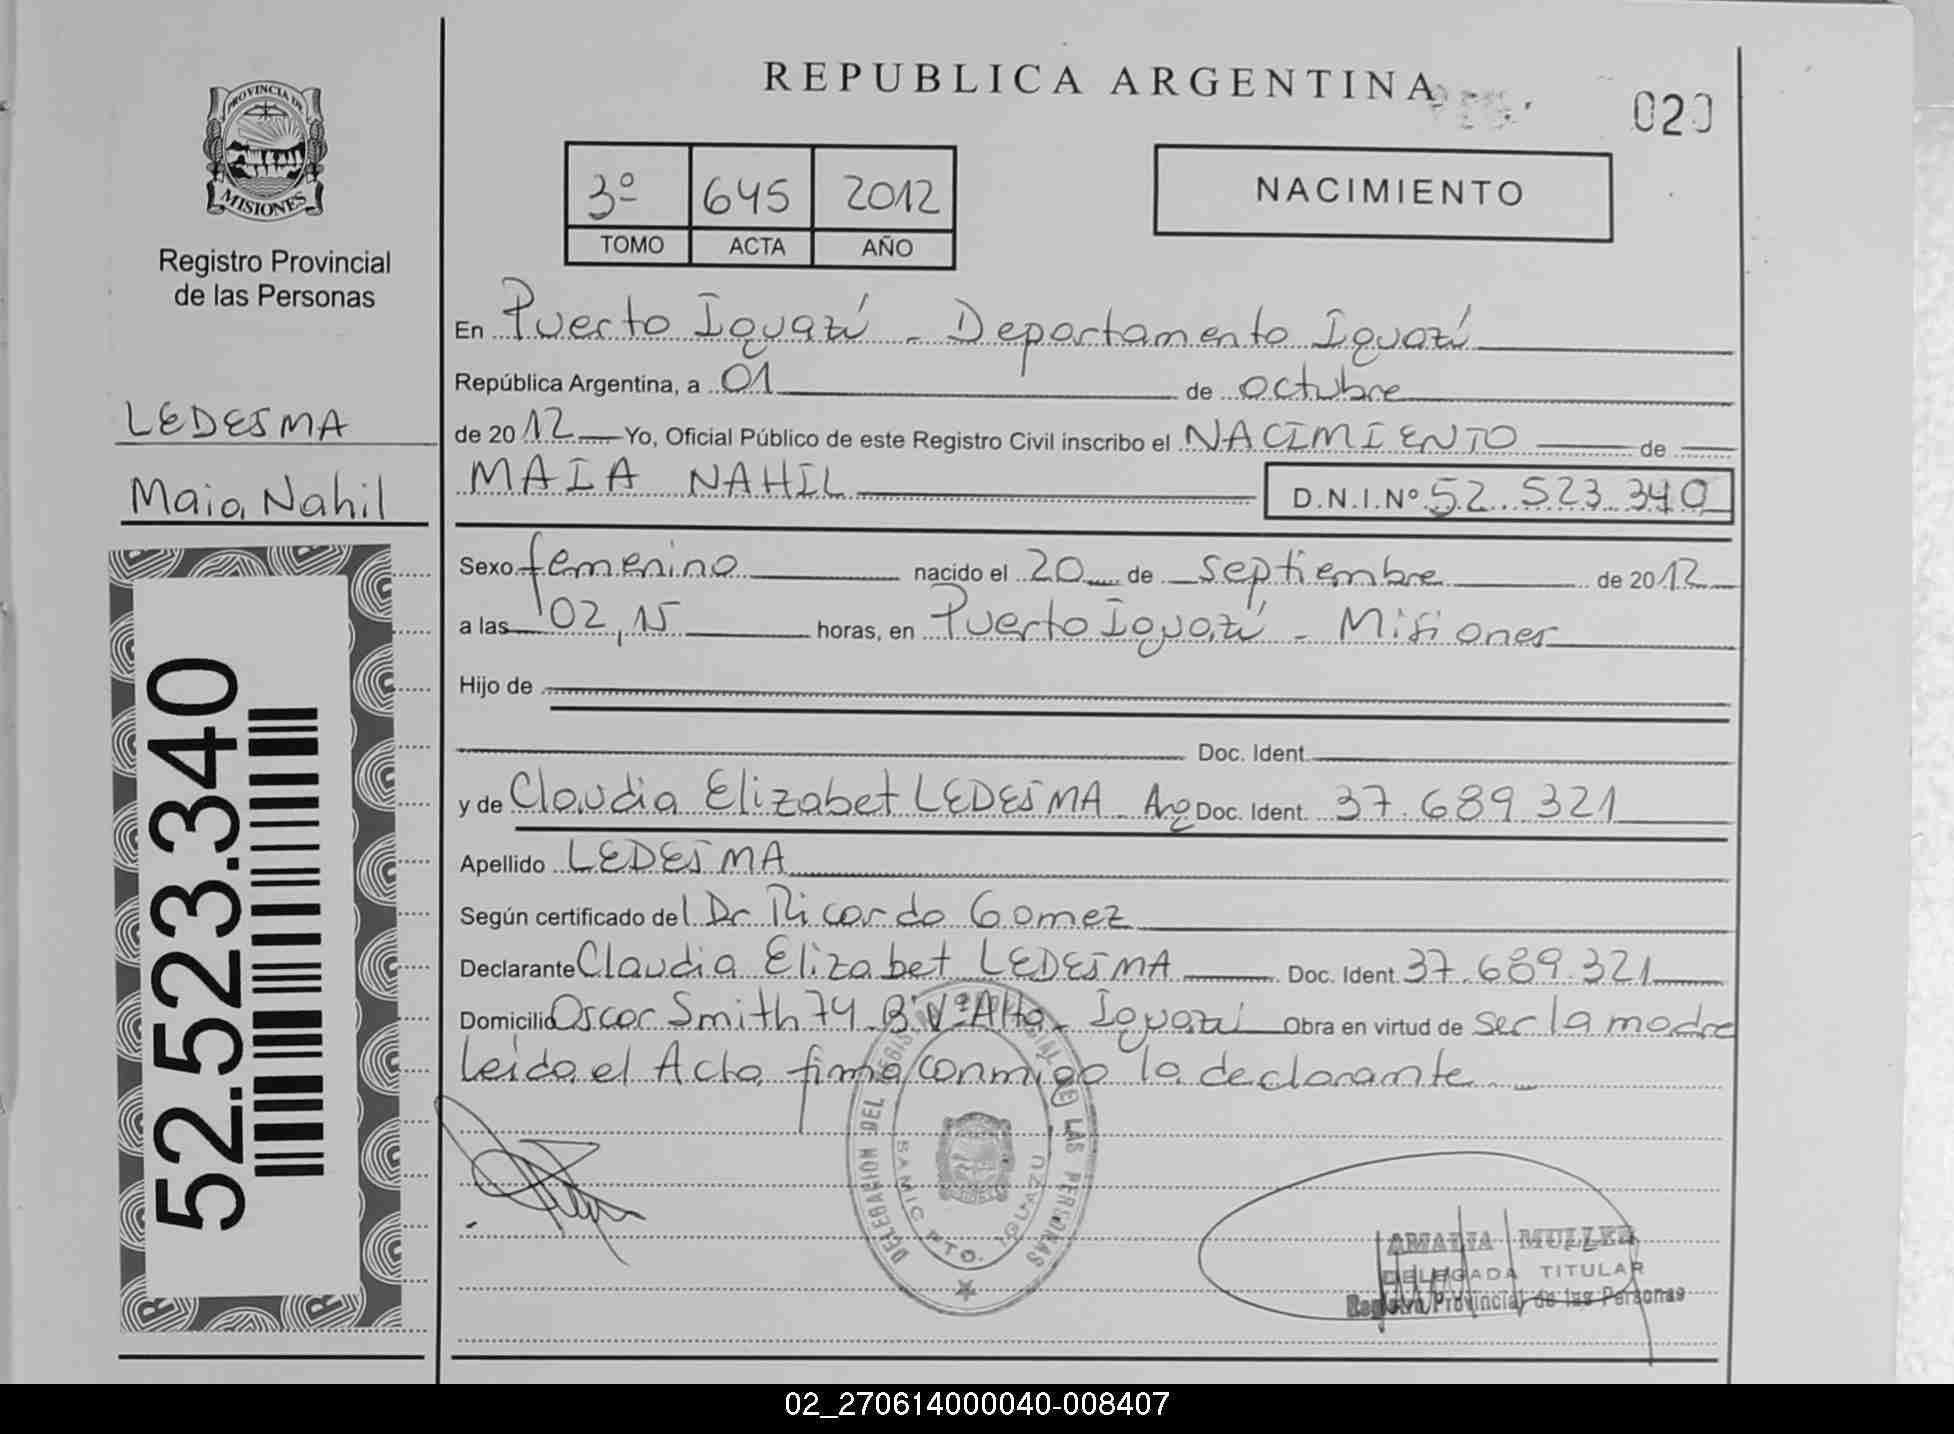 REPUBLICA ARGENTINA
020
PROVINCIA DE
MISIONES
Registro Provincial
de las Personas
3º 645 2012
TOMO ACTA AÑO
NACIMIENTO
En Puerto Iguazú - Departamento Iguazú
República Argentina, a 01 de octubre
LEDESMA
de 2012 Yo, Oficial Público de este Registro Civil inscribo el NACIMIENTO de
Maia Nahil
MAIA NAHIL D.N.I.Nº 52.523.340
Sexo femenino nacido el 20 de septiembre de 2012
a las 02,15 horas, en Puerto Iguazú - Misiones
Hijo de
Doc. Ident.
y de Claudia Elizabet LEDESMA Arg Doc. Ident. 37.689.321
Apellido LEDESMA
Según certificado del Dr Ricardo Gomez
Declarante Claudia Elizabet LEDESMA Doc. Ident. 37.689.321
Domicilio Oscar Smith 74 Bº Vª Alta - Iguazú Obra en virtud de ser la madre
leida el Acta firma conmigo la declarante
52.523.340
DELEGACION DEL REGISTRO PROVINCIAL DE LAS PERSONAS
SAMIC PTO. IGUAZU
AMALIA MULLER
DELEGADA TITULAR
Registro Provincial de las Personas
02_270614000040-008407